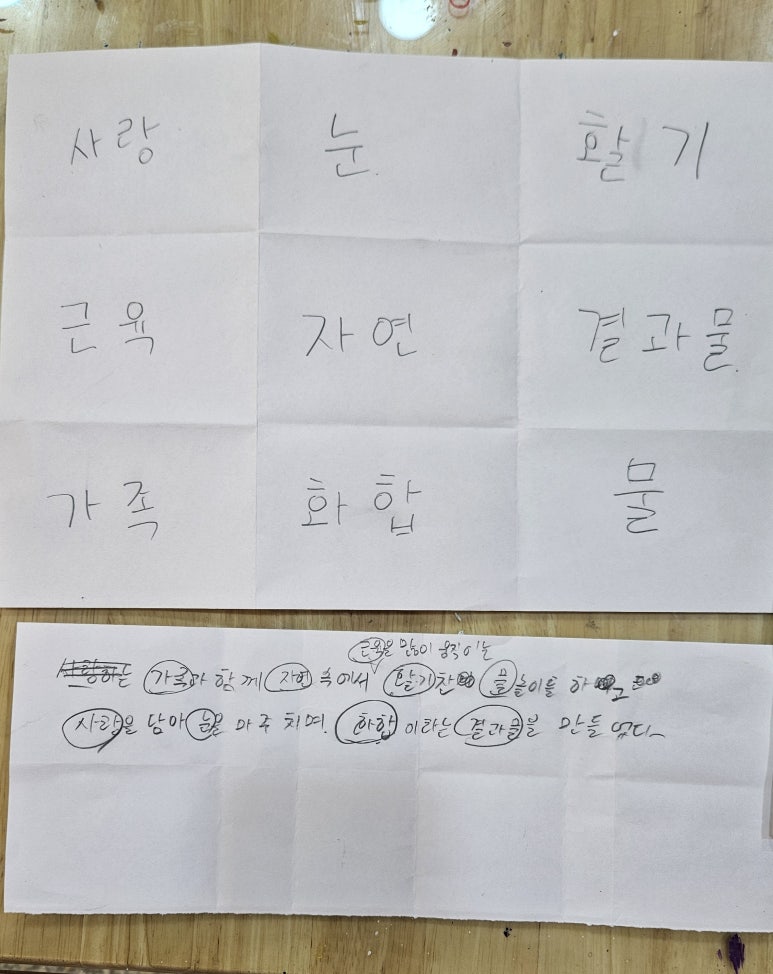 사랑 눈 활기
근육 자연 결과물
가족 화합 물
근육을 많이 움직이는
사랑하는 가족과 함께 자연 속에서 활기찬 물놀이를 하고
사랑을 담아 눈을 마주치며 화합이라는 결과물을 만들었다